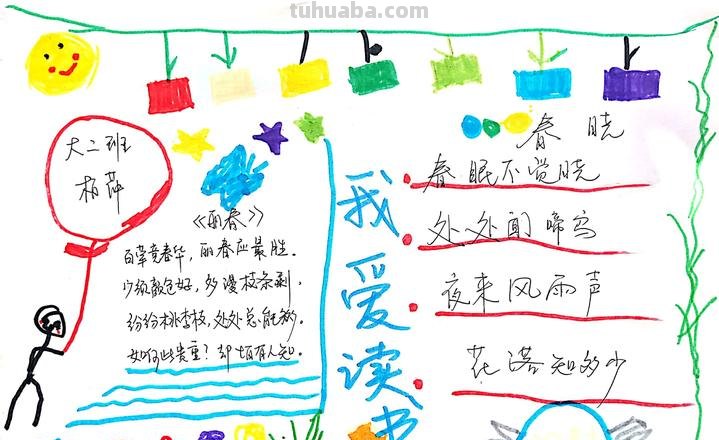 tuhuaba.com
大二班
柏
《丽春》
百草竞春华，丽春应最胜。
少须颜色好，多漫枝条剩，
纷纷桃李枝，处处总能移。
如何此贵重？却怕有人知。
我爱读书
春晓
春眠不觉晓
处处闻啼鸟
夜来风雨声
花落知多少